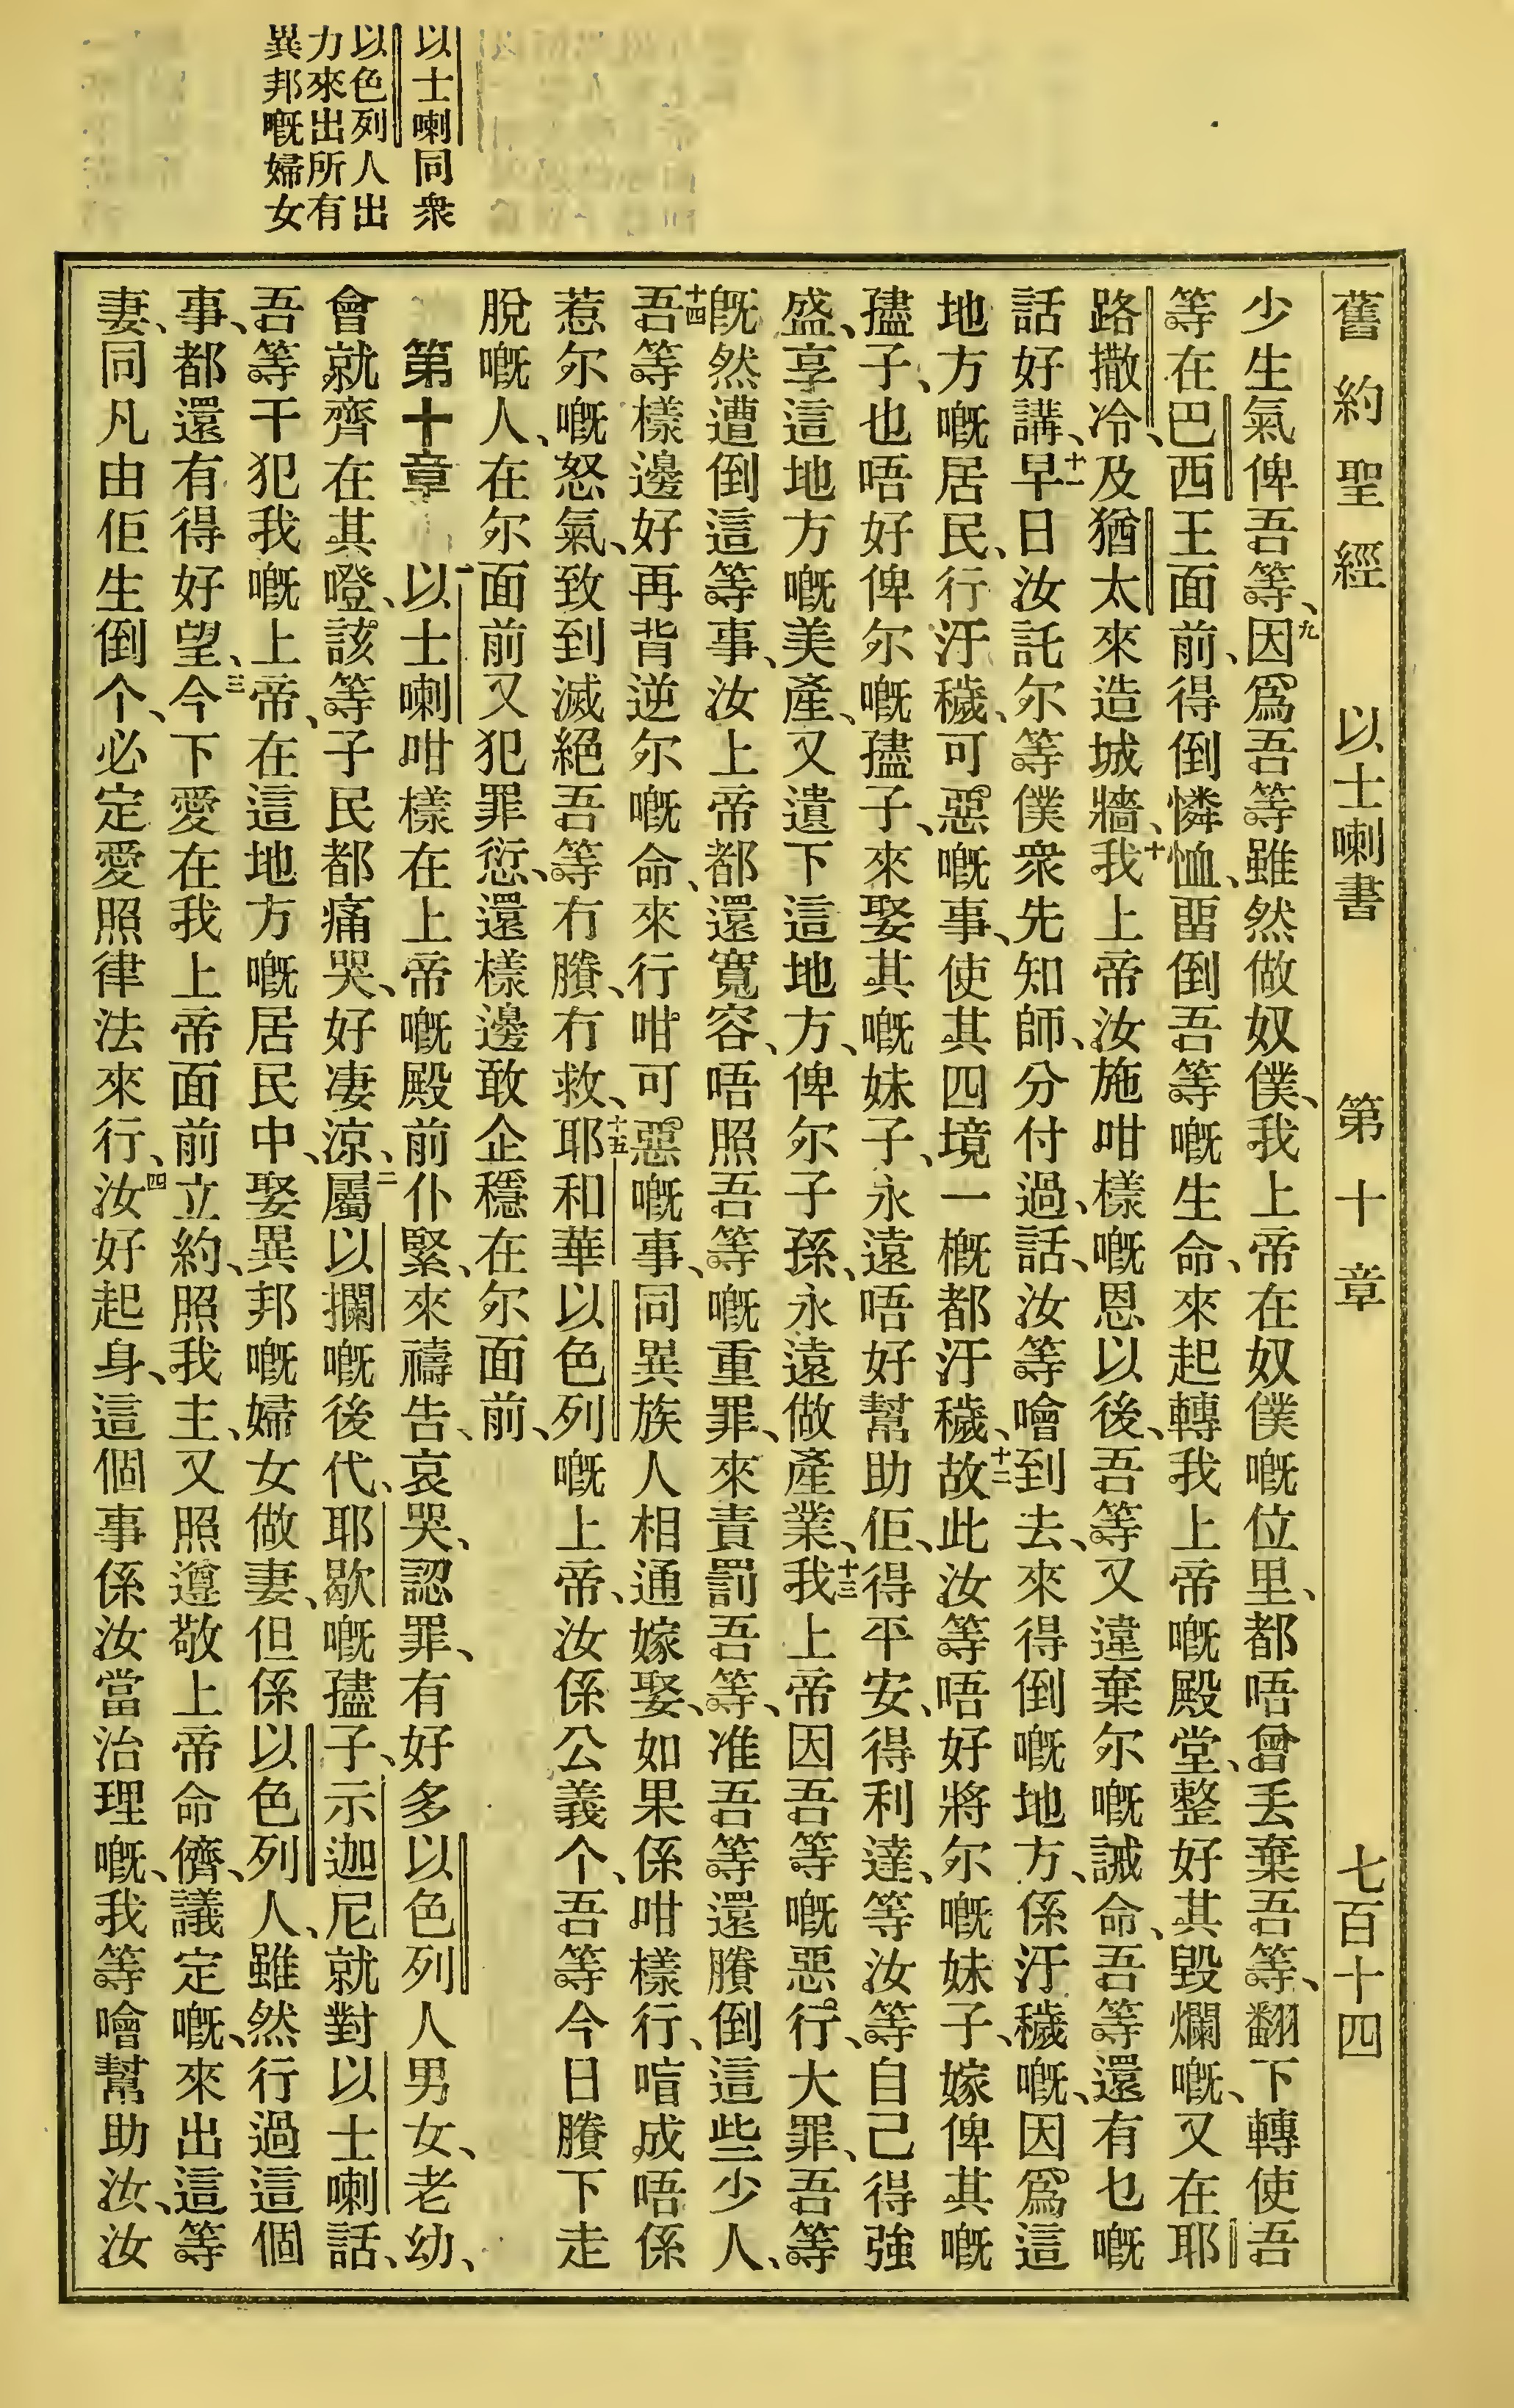 舊約聖經　以士喇書　第十章　七百十四
少生氣俾吾等、九因爲吾等雖然做奴僕、我上帝在奴僕嘅位里、都唔曾丢棄吾等、翻下轉使吾
等在巴西王面前、得倒憐恤、畱倒吾等嘅生命、來起轉我上帝嘅殿堂、整好其毀爛嘅、又在耶
路撒冷、及猶太來造城牆、十我上帝汝施咁樣嘅恩以後、吾等又違棄尔嘅誡命、吾等還有乜嘅
話好講、十一早日汝託尔等僕衆先知師、分付過、話、汝等噲到去、來得倒嘅地方、係汙穢嘅、因爲這
地方嘅居民、行汙穢、可惡嘅事、使其四境一概都汙穢、十二故此汝等唔好將尔嘅妹子、嫁俾其嘅
孻子、也唔好俾尔嘅孻子、來娶其嘅妹子、永遠唔好幫助佢、得平安、得利達、等汝等自己得強
盛、享這地方嘅美產、又遺下這地方、俾尔子孫、永遠做產業、十三我上帝因吾等嘅惡行、大罪、吾等
旣然遭倒這等事、汝上帝都還寬容、唔照吾等嘅重罪、來責罰吾等、准吾等還賸倒這些少人、
十四吾等樣邊好再背逆尔嘅命、來行咁可惡嘅事、同異族人相通嫁娶、如果係咁樣行、唁成唔係
惹尔嘅怒氣、致到滅絕吾等冇賸、冇救、十五耶和華以色列嘅上帝、汝係公義个、吾等今日賸下走
脫嘅人、在尔面前又犯罪愆、還樣邊敢企穩在尔面前、
以士喇同衆
以色列人出
力來出所有
異邦嘅婦女
第十章　一以士喇咁樣在上帝嘅殿前仆緊、來禱告、哀哭、認罪、有好多以色列人男女、老幼、
會就齊在其嶝、該等子民都痛哭、好凄涼、二屬以攔嘅後代、耶歇嘅孻子、示迦尼就對以士喇話、
吾等干犯我嘅上帝、在這地方嘅居民中、娶異邦嘅婦女做妻、但係以色列人、雖然行過這個
事、都還有得好望、三今下愛在我上帝面前立約、照我主、又照遵敬上帝命儕、議定嘅、來出這等
妻、同凡由佢生倒个、必定愛照律法來行、四汝好起身、這個事係汝當治理嘅、我等噲幫助汝、汝